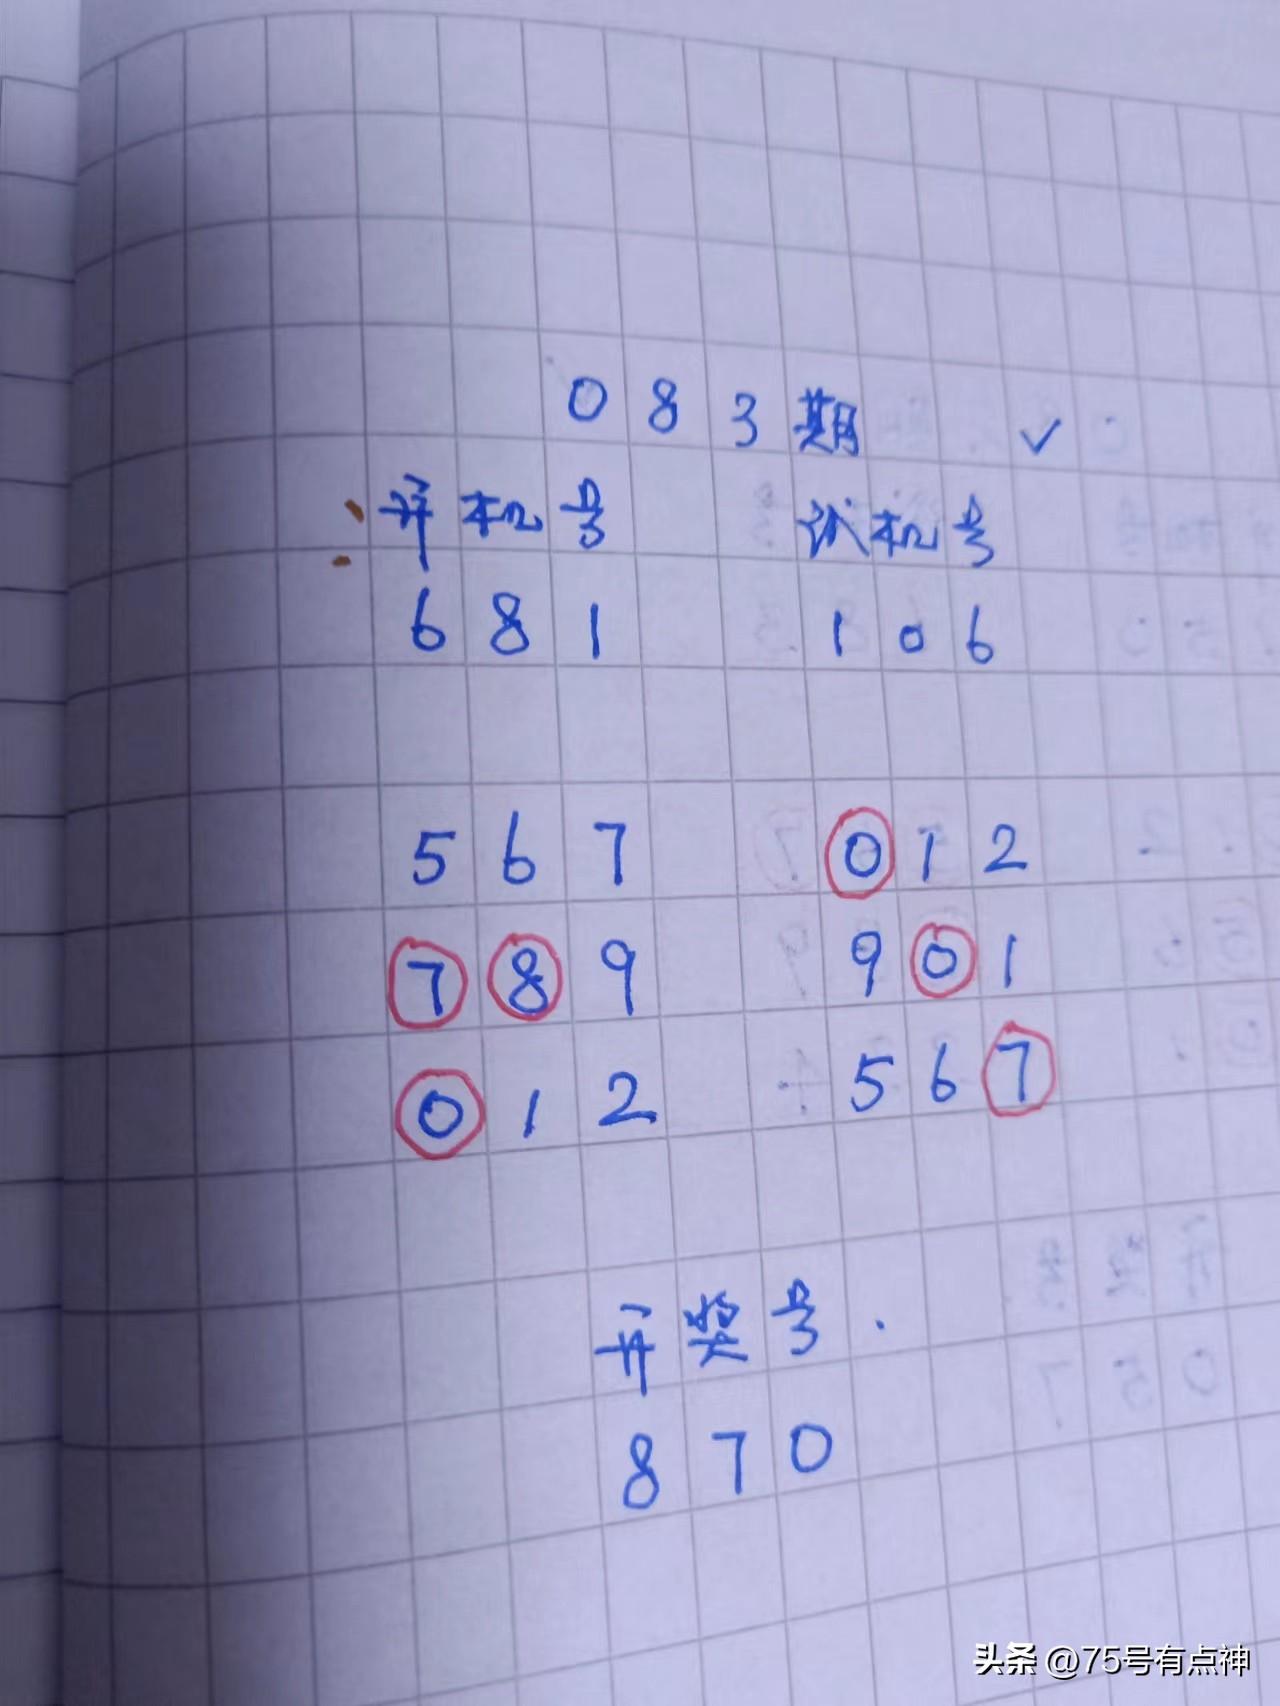 083期 ✓
开机号 试机号
681 106
567 012
789 901
012 567
开奖号.
870
头条 @75号有点神